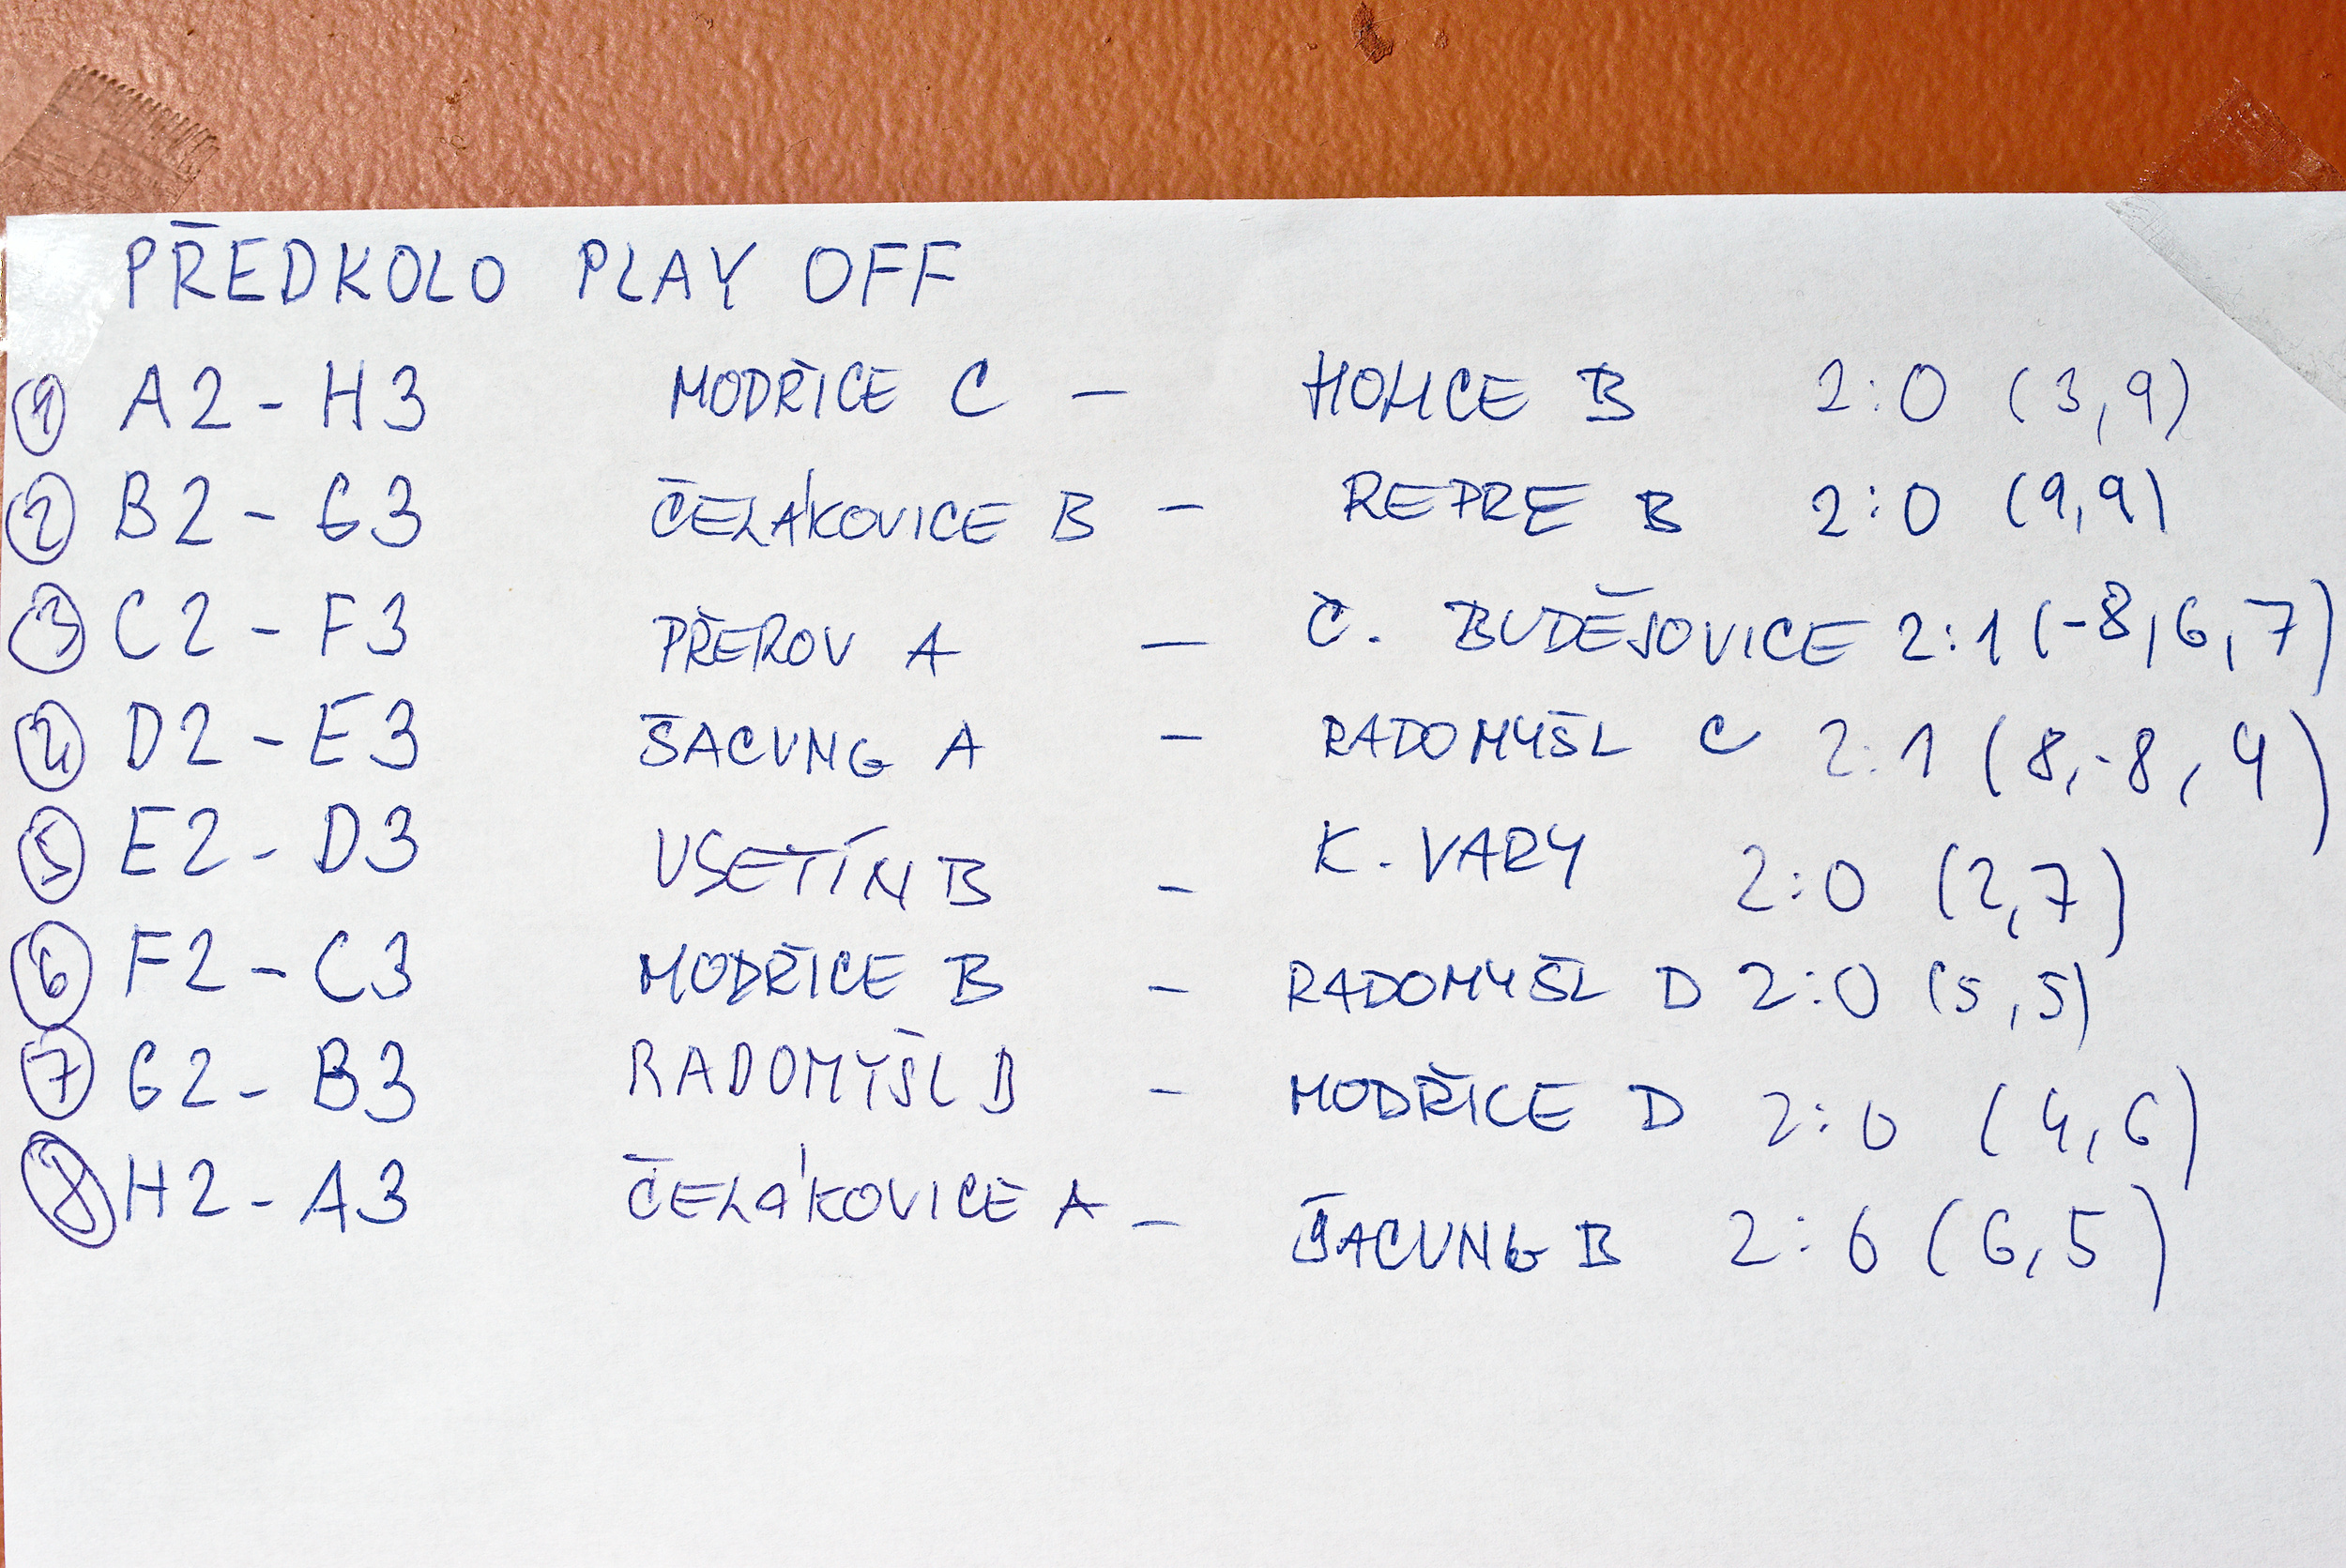 PŘEDKOLO PLAY OFF
1 A2 - H3 MODŘICE C - HOLICE B 2:0 (3,9)
2 B2 - G3 ČELÁKOVICE B - REPRE B 2:0 (9,9)
3 C2 - F3 PŘEROV A - Č. BUDĚJOVICE 2:1 (-8,6,7)
4 D2 - E3 ŠACUNG A - RADOMYŠL C 2:1 (8,-8,9)
5 E2 - D3 VSETÍN B - K. VARY 2:0 (2,7)
6 F2 - C3 MODŘICE B - RADOMYŠL D 2:0 (5,5)
7 G2 - B3 RADOMYŠL B - MODŘICE D 2:0 (4,6)
8 H2 - A3 ČELÁKOVICE A - ŠACUNG B 2:0 (6,5)